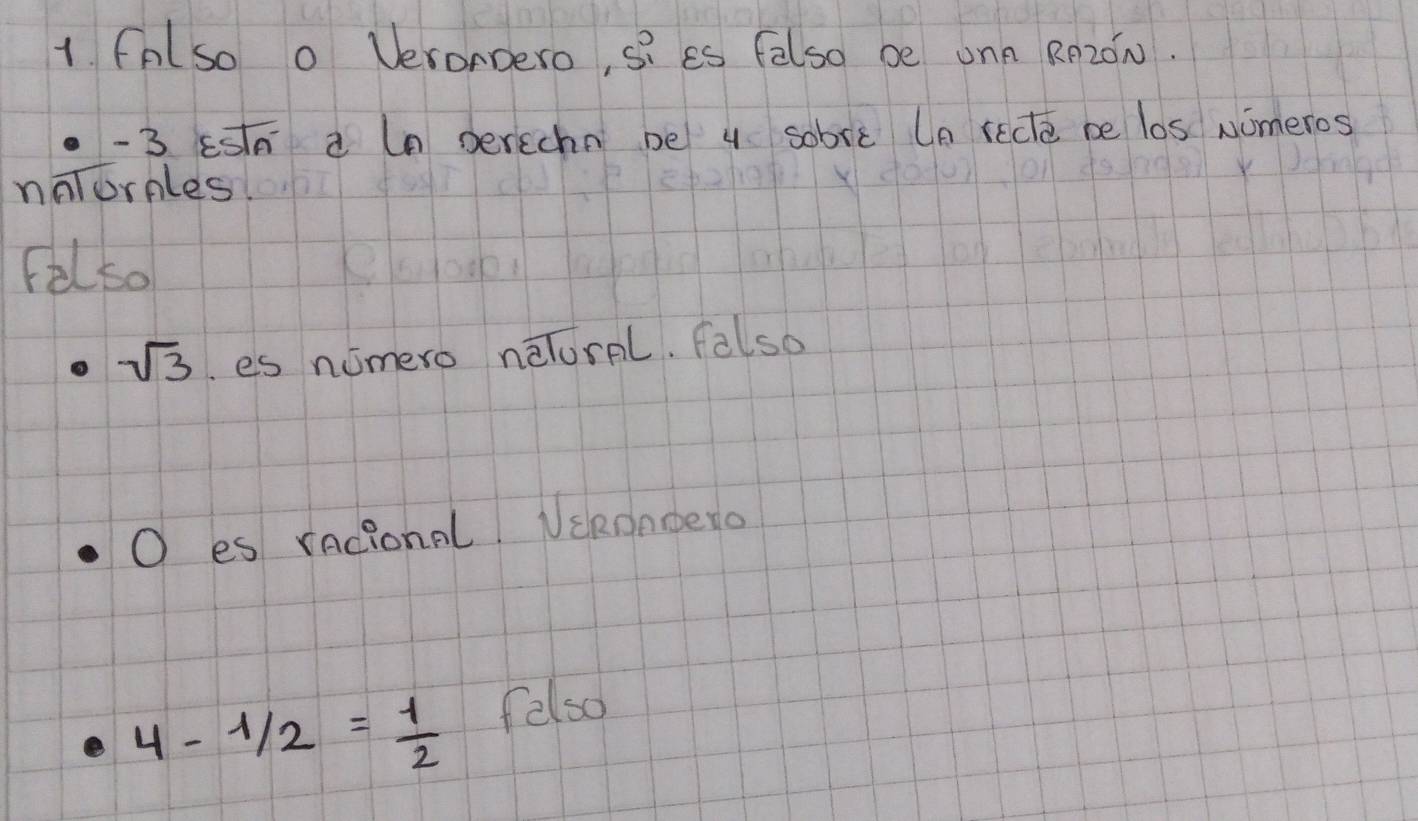 1. Falso o Verdadero, si es falso de una Razón.
• -3 está a la derecha de 4 sobre la recta de los números
naturales.
Falso
• √3. es número natural. Falso
• 0 es racional. Verdadero
• 4 - 1/2 = 1/2 Falso